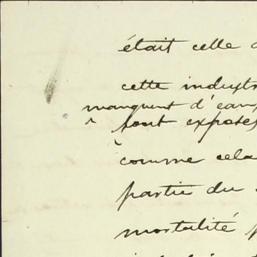 était celle
cette industr
manquent d'eau
sont exposé
comme cela
partie du
mortalité